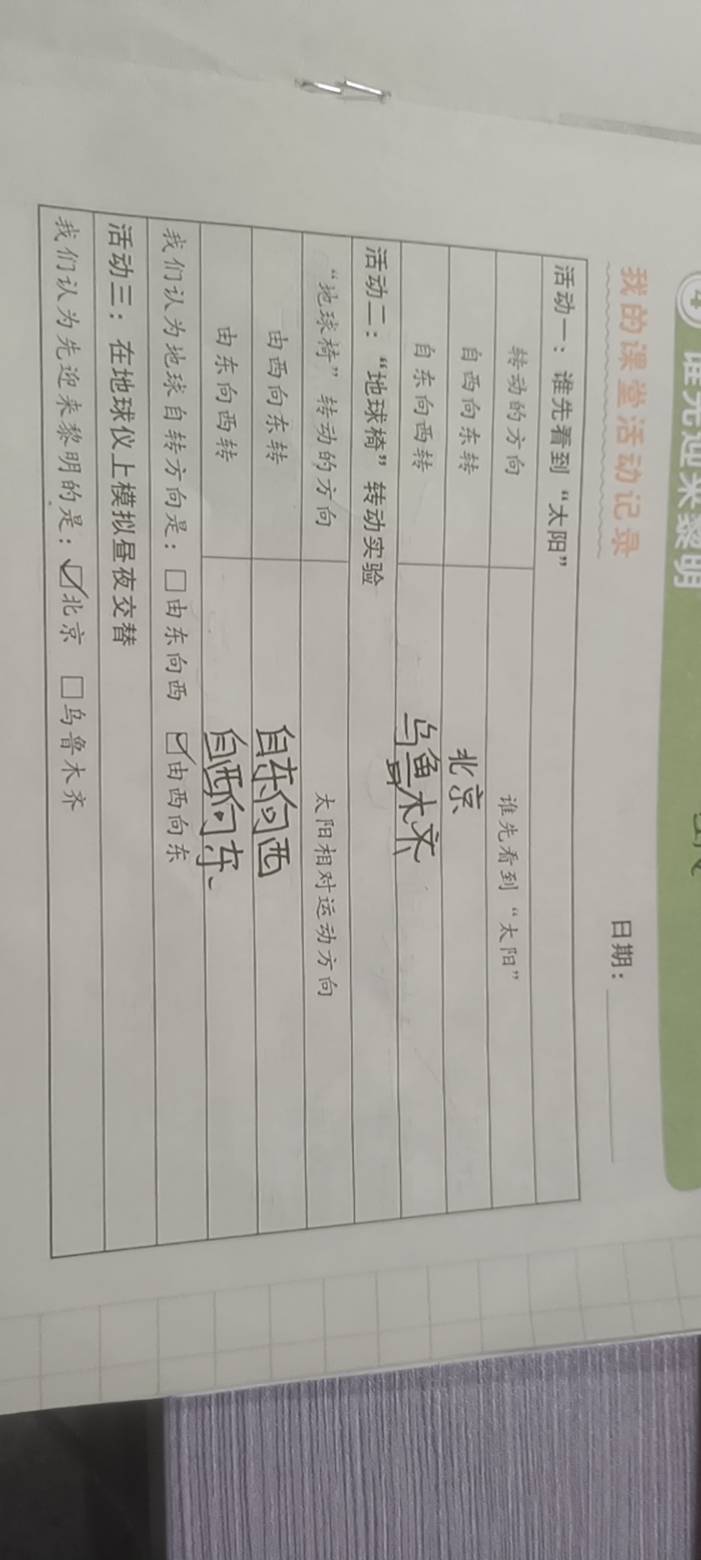 4 谁先迎来黎明
我的课堂活动记录
日期：
活动一：谁先看到“太阳”
转动的方向 谁先看到“太阳”
自西向东转 北京
自东向西转 乌鲁木齐
活动二：“地球椅”转动实验
“地球椅”转动的方向 太阳相对运动方向
由西向东转 自东向西
由东向西转 自西向东、
我们认为地球自转方向是：☐由东向西 ☑由西向东
活动三：在地球仪上模拟昼夜交替
我们认为先迎来黎明的是：☑北京 ☐乌鲁木齐